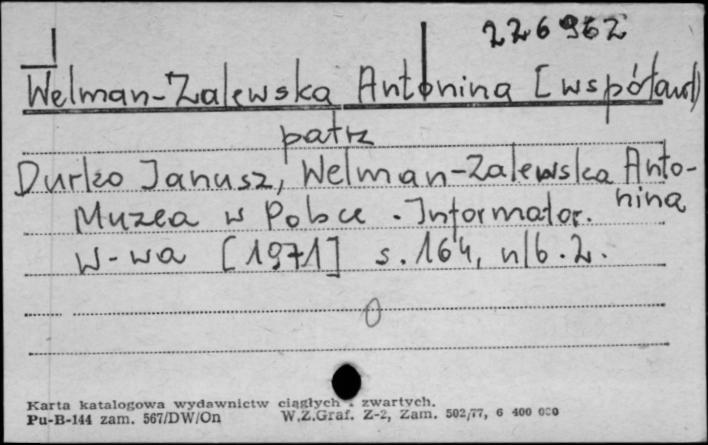 226962
Welman-Zalewska Antonina [współaut]
patrz
Durko Janusz, Welman-Zalewska Anto-
nina
Muzea w Polsce. Informator.
W-wa [1971] s. 164, nlb. 2.
0
Karta katalogowa wydawnictw ciągłych i zwartych.
Pu-B-144 zam. 567/DW/On W.Z.Graf. Z-2, Zam. 502/77, 6 400 000